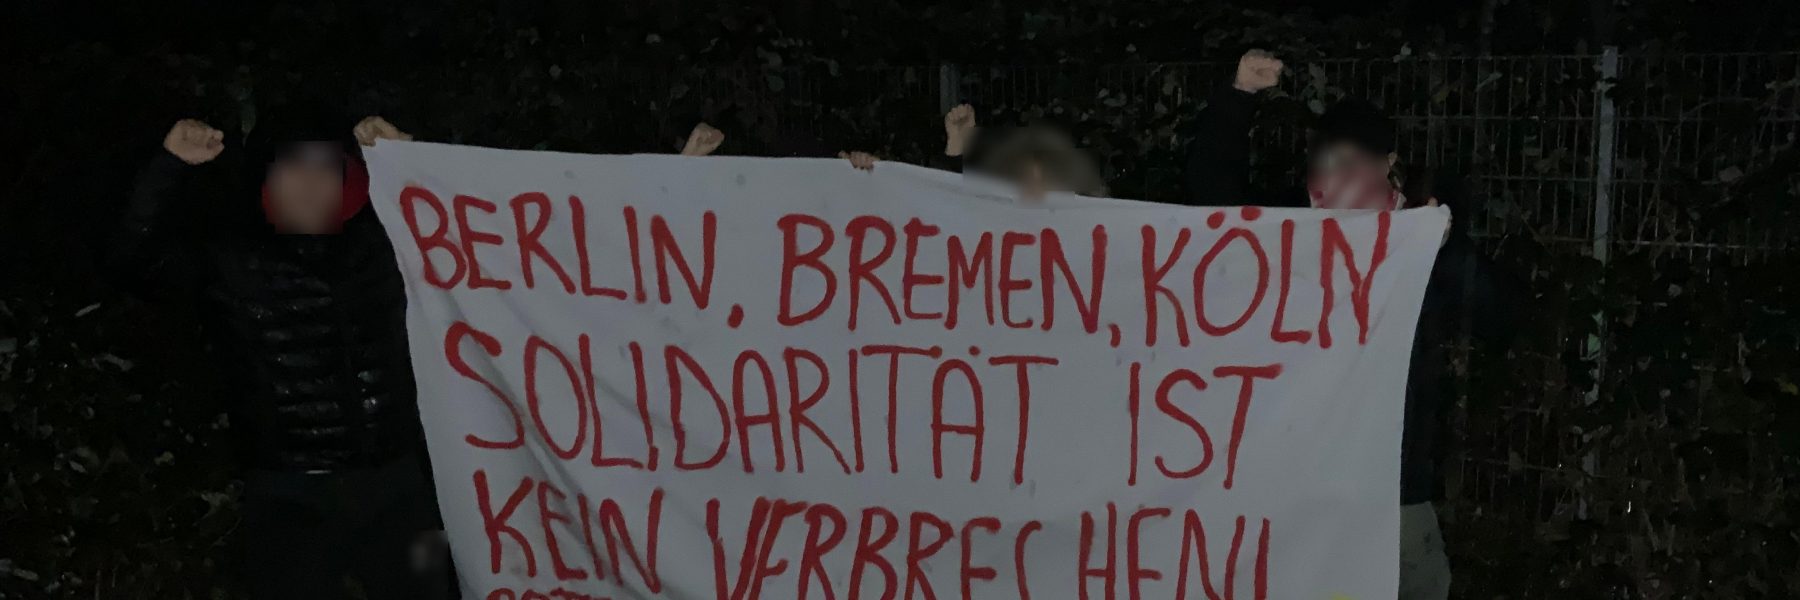 BERLIN, BREMEN, KÖLN
SOLIDARITÄT IST
KEIN VERBRECHEN!